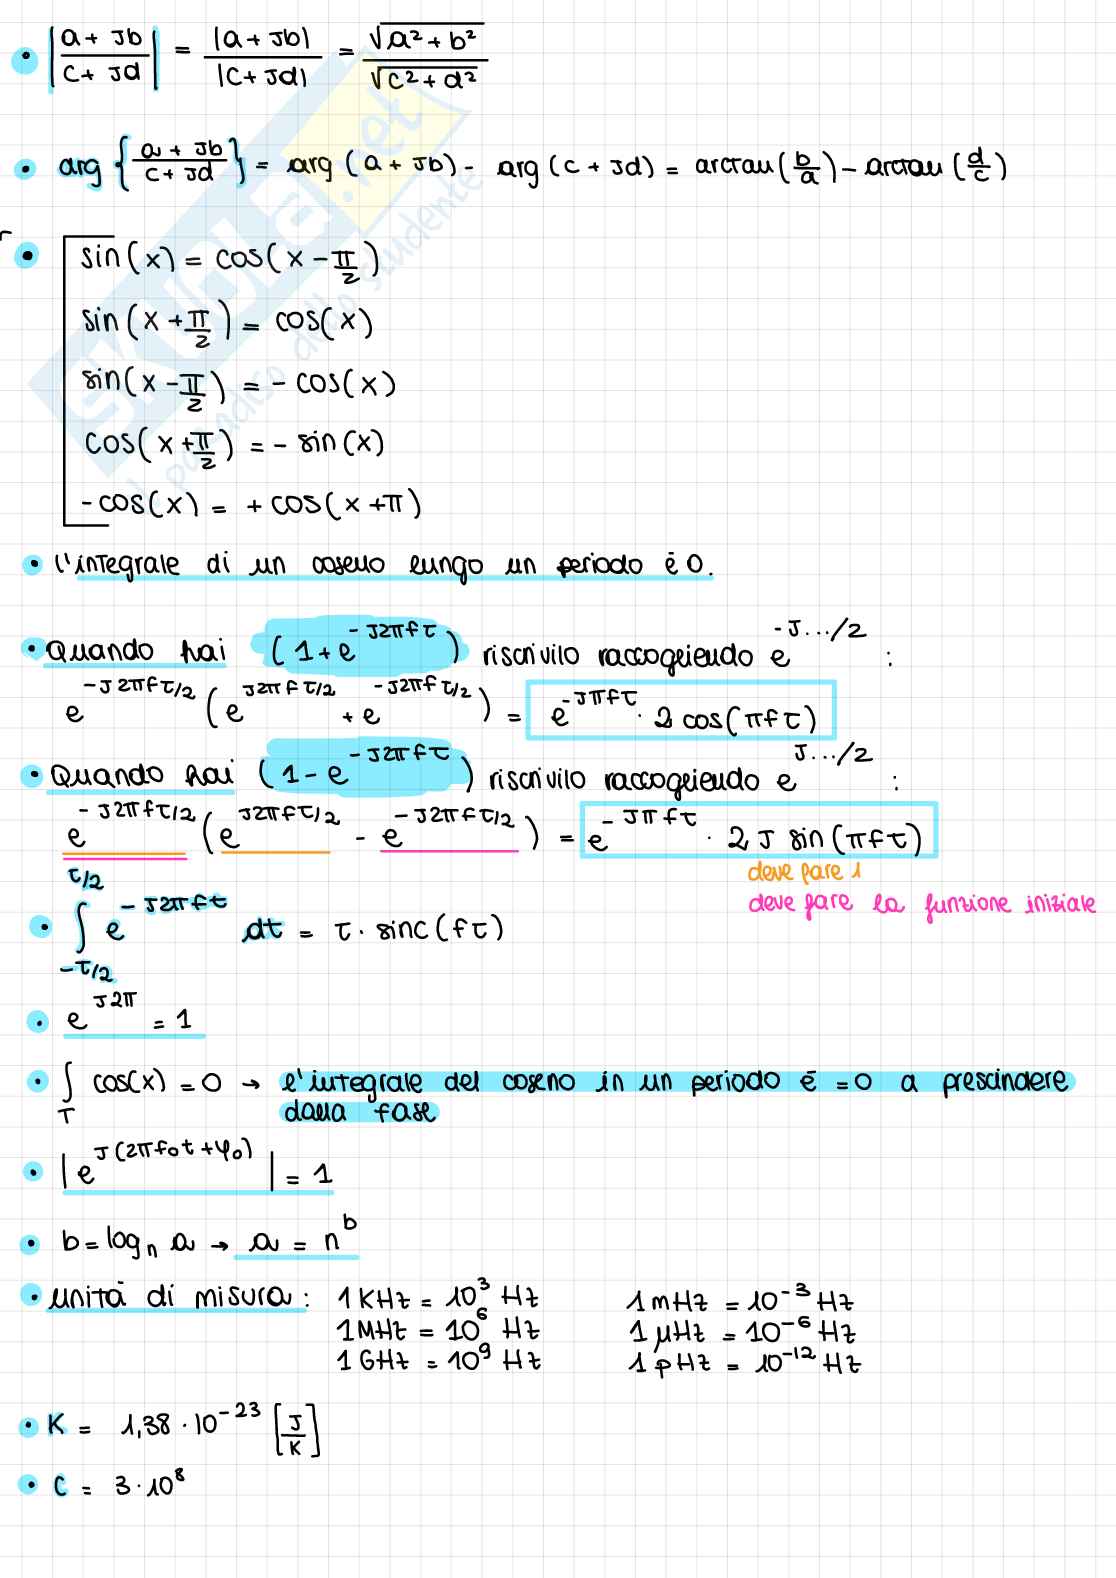 • |a + Jb / c + Jd| = |a + Jb| / |c + Jd| = √(a² + b²) / √(c² + d²)
• arg {a + Jb / c + Jd} = arg (a + Jb) - arg (c + Jd) = arctan (b/a) - arctan (d/c)
• sin(x) = cos(x - π/2)
sin(x + π/2) = cos(x)
sin(x - π/2) = - cos(x)
cos(x + π/2) = - sin(x)
- cos(x) = + cos(x + π)
• l'integrale di un coseno lungo un periodo è 0.
• Quando hai (1 + e^(-J2πfτ)) riscrivilo raccogliendo e^(-J.../2) :
e^(-J2πfτ/2) (e^(J2πfτ/2) + e^(-J2πfτ/2)) = e^(-Jπfτ) · 2 cos(πfτ)
• Quando hai (1 - e^(-J2πfτ)) riscrivilo raccogliendo e^(J.../2) :
e^(-J2πfτ/2) (e^(J2πfτ/2) - e^(-J2πfτ/2)) = e^(-Jπfτ) · 2 J sin(πfτ)
deve fare 1
deve fare la funzione iniziale
• ∫_(-τ/2)^(τ/2) e^(-J2πft) dt = τ · sinc(fτ)
• e^(J2π) = 1
• ∫_T cos(x) = 0 → l'integrale del coseno in un periodo è = 0 a prescindere
dalla fase
• |e^(J(2πf₀t + φ₀))| = 1
• b = log_n a → a = n^b
• unità di misura : 1 KHz = 10³ Hz 1 mHz = 10⁻³ Hz
1 MHz = 10⁶ Hz 1 μHz = 10⁻⁶ Hz
1 GHz = 10⁹ Hz 1 pHz = 10⁻¹² Hz
• K = 1,38 · 10⁻²³ [J/K]
• C = 3 · 10⁸
SKUOLA.net
il paradiso dello studente